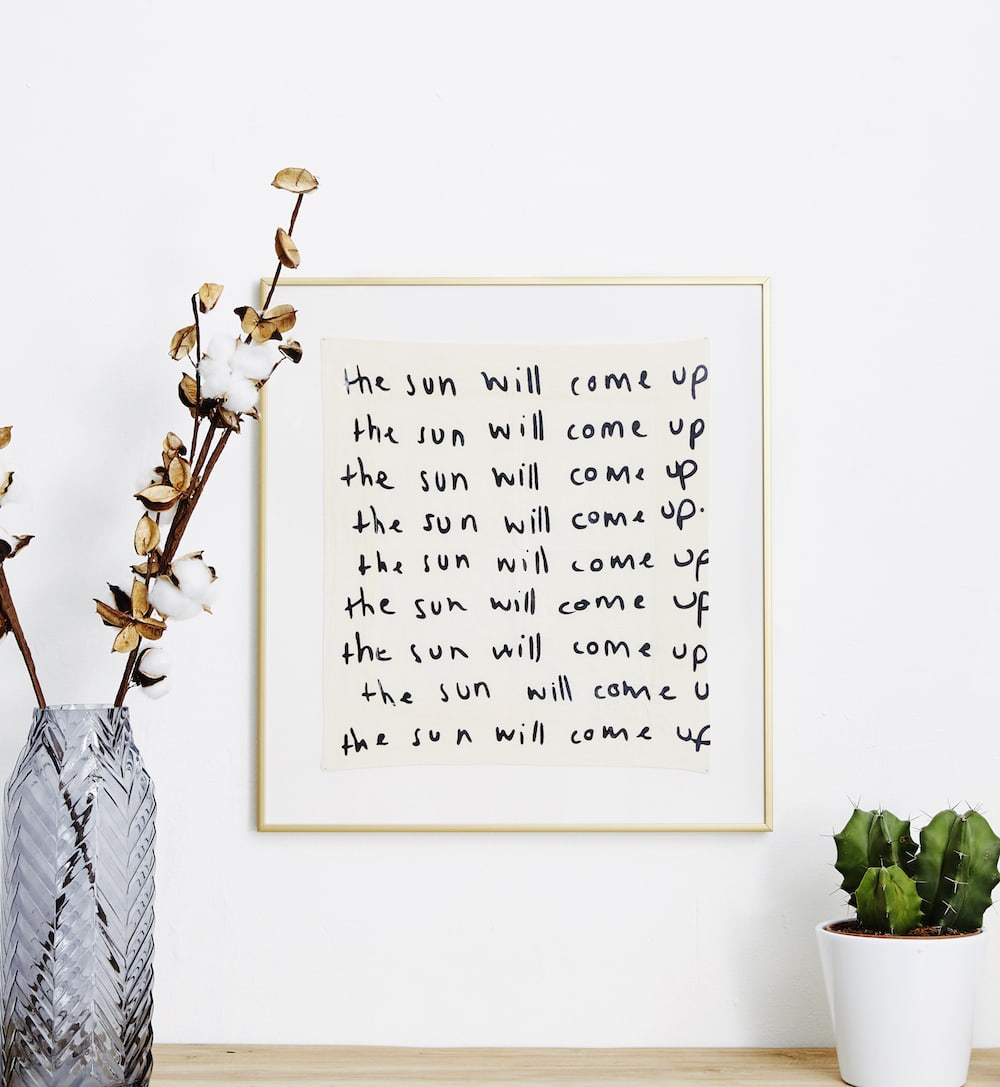 the sun will come up
the sun will come up
the sun will come up
the sun will come up.
the sun will come up
the sun will come up
the sun will come up
the sun will come u
the sun will come up